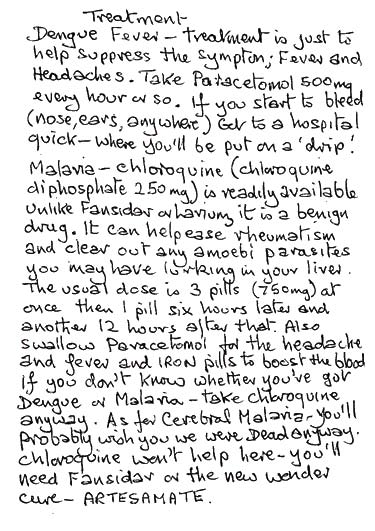 Treatment
Dengue Fever - treatment is just to
help suppress the symptom; Fever and
Headaches. Take Paracetomol 500mg
every hour or so. If you start to bleed
(nose, ears, anywhere) Get to a hospital
quick - where you'll be put on a 'drip'.
Malaria - chloroquine (chloroquine
diphosphate 250 mg) is readily available
unlike Fansidar or Larium, it is a benign
drug. It can help ease rheumatism
and clear out any amoebi parasites
you may have lurking in your liver.
The usual dose is 3 pills (750mg) at
once then 1 pill six hours later and
another 12 hours after that. Also
swallow Paracetomol for the headache
and fever and IRON pills to boost the blood
If you don't know whether you've got
Dengue or Malaria - take chloroquine
anyway. As for Cerebral Malaria - you'll
probably wish you we were Dead anyway.
Chloroquine won't help here - you'll
need Fansidar or the new wonder
cure - ARTESAMATE.